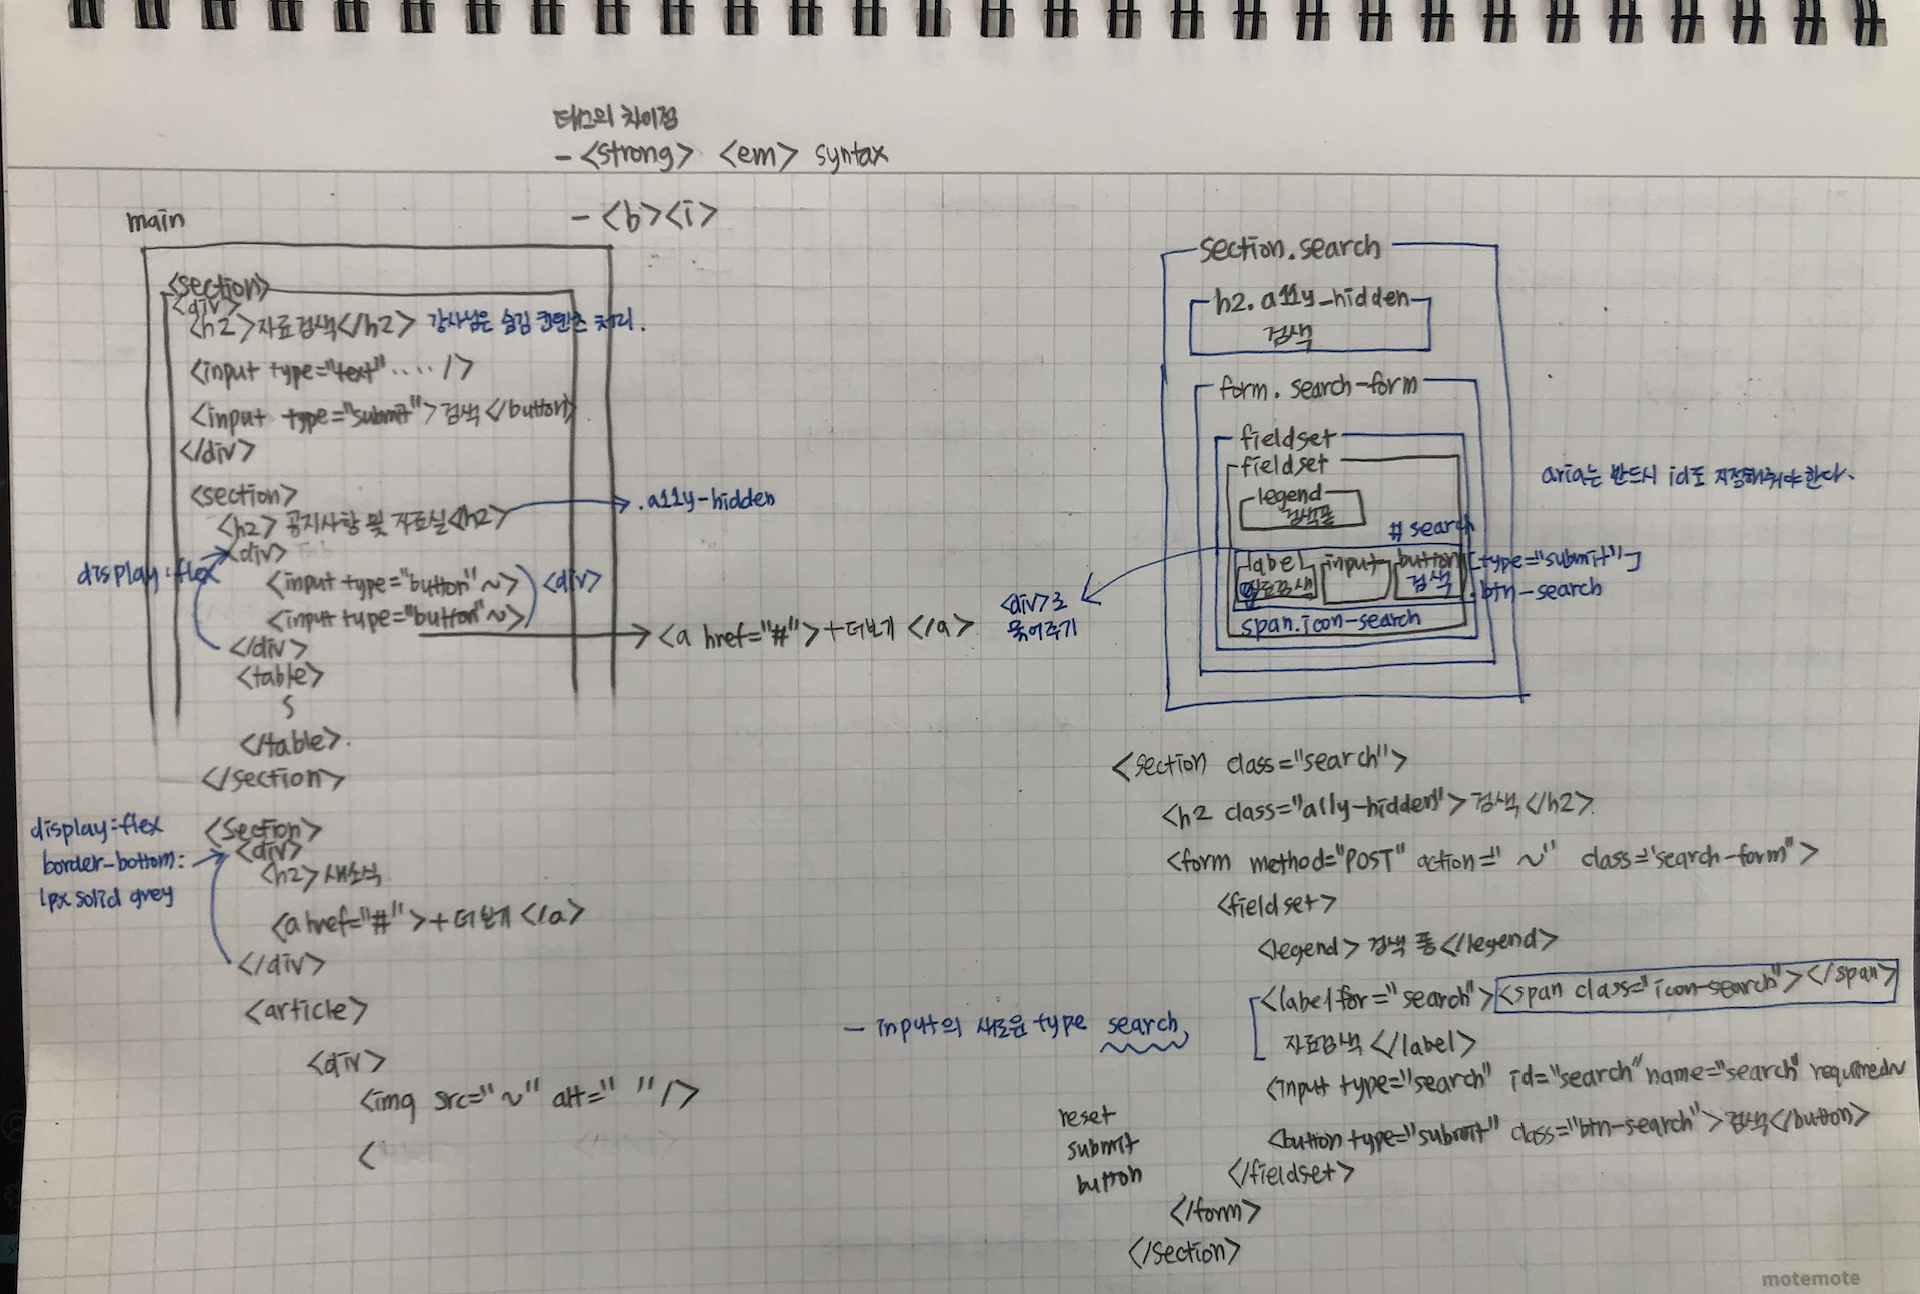 태그의 차이점
- <strong> <em> syntax
- <b><i>
main
<section>
<div>
<h2>자료검색</h2> 강사님은 숨김 컨텐츠 처리.
<input type="text" ···· />
<input type="submit">검색</button>
</div>
<section>
<h2> 공지사항 및 자료실<h2>
.a11y-hidden
<div>
display:flex
<input type="button"~>
<div>
<input type="button"~>
<a href="#">+더보기 </a>
</div>
<table>
</table>.
</section>
display:flex
border-bottom:
1px solid grey
<section>
<div>
<h2> 새소식
<a href="#">+더보기</a>
</div>
<article>
<div>
<img src="~" alt=" "/>
<
section.search
h2.a11y-hidden
검색
form. search-form
fieldset
fieldset
legend
검색폼
# search
label input button [type="submit"]
자료검색 검색 .btn-search
span.icon-search
<div>로
묶어주기
aria는 반드시 id도 지정해줘야한다.
<section class="search">
<h2 class="a11y-hidden">검색</h2>
<form method="POST" action="~" class="search-form">
<fieldset>
<legend>검색 폼</legend>
<label for="search"><span class="icon-search"></span>
자료검색 </label>
- input의 새로운 type search
<input type="search" id="search" name="search"
<button type="submit" class="btn-search">검색</button>
reset
submit
button
</fieldset>
</form>
</section>
motemote